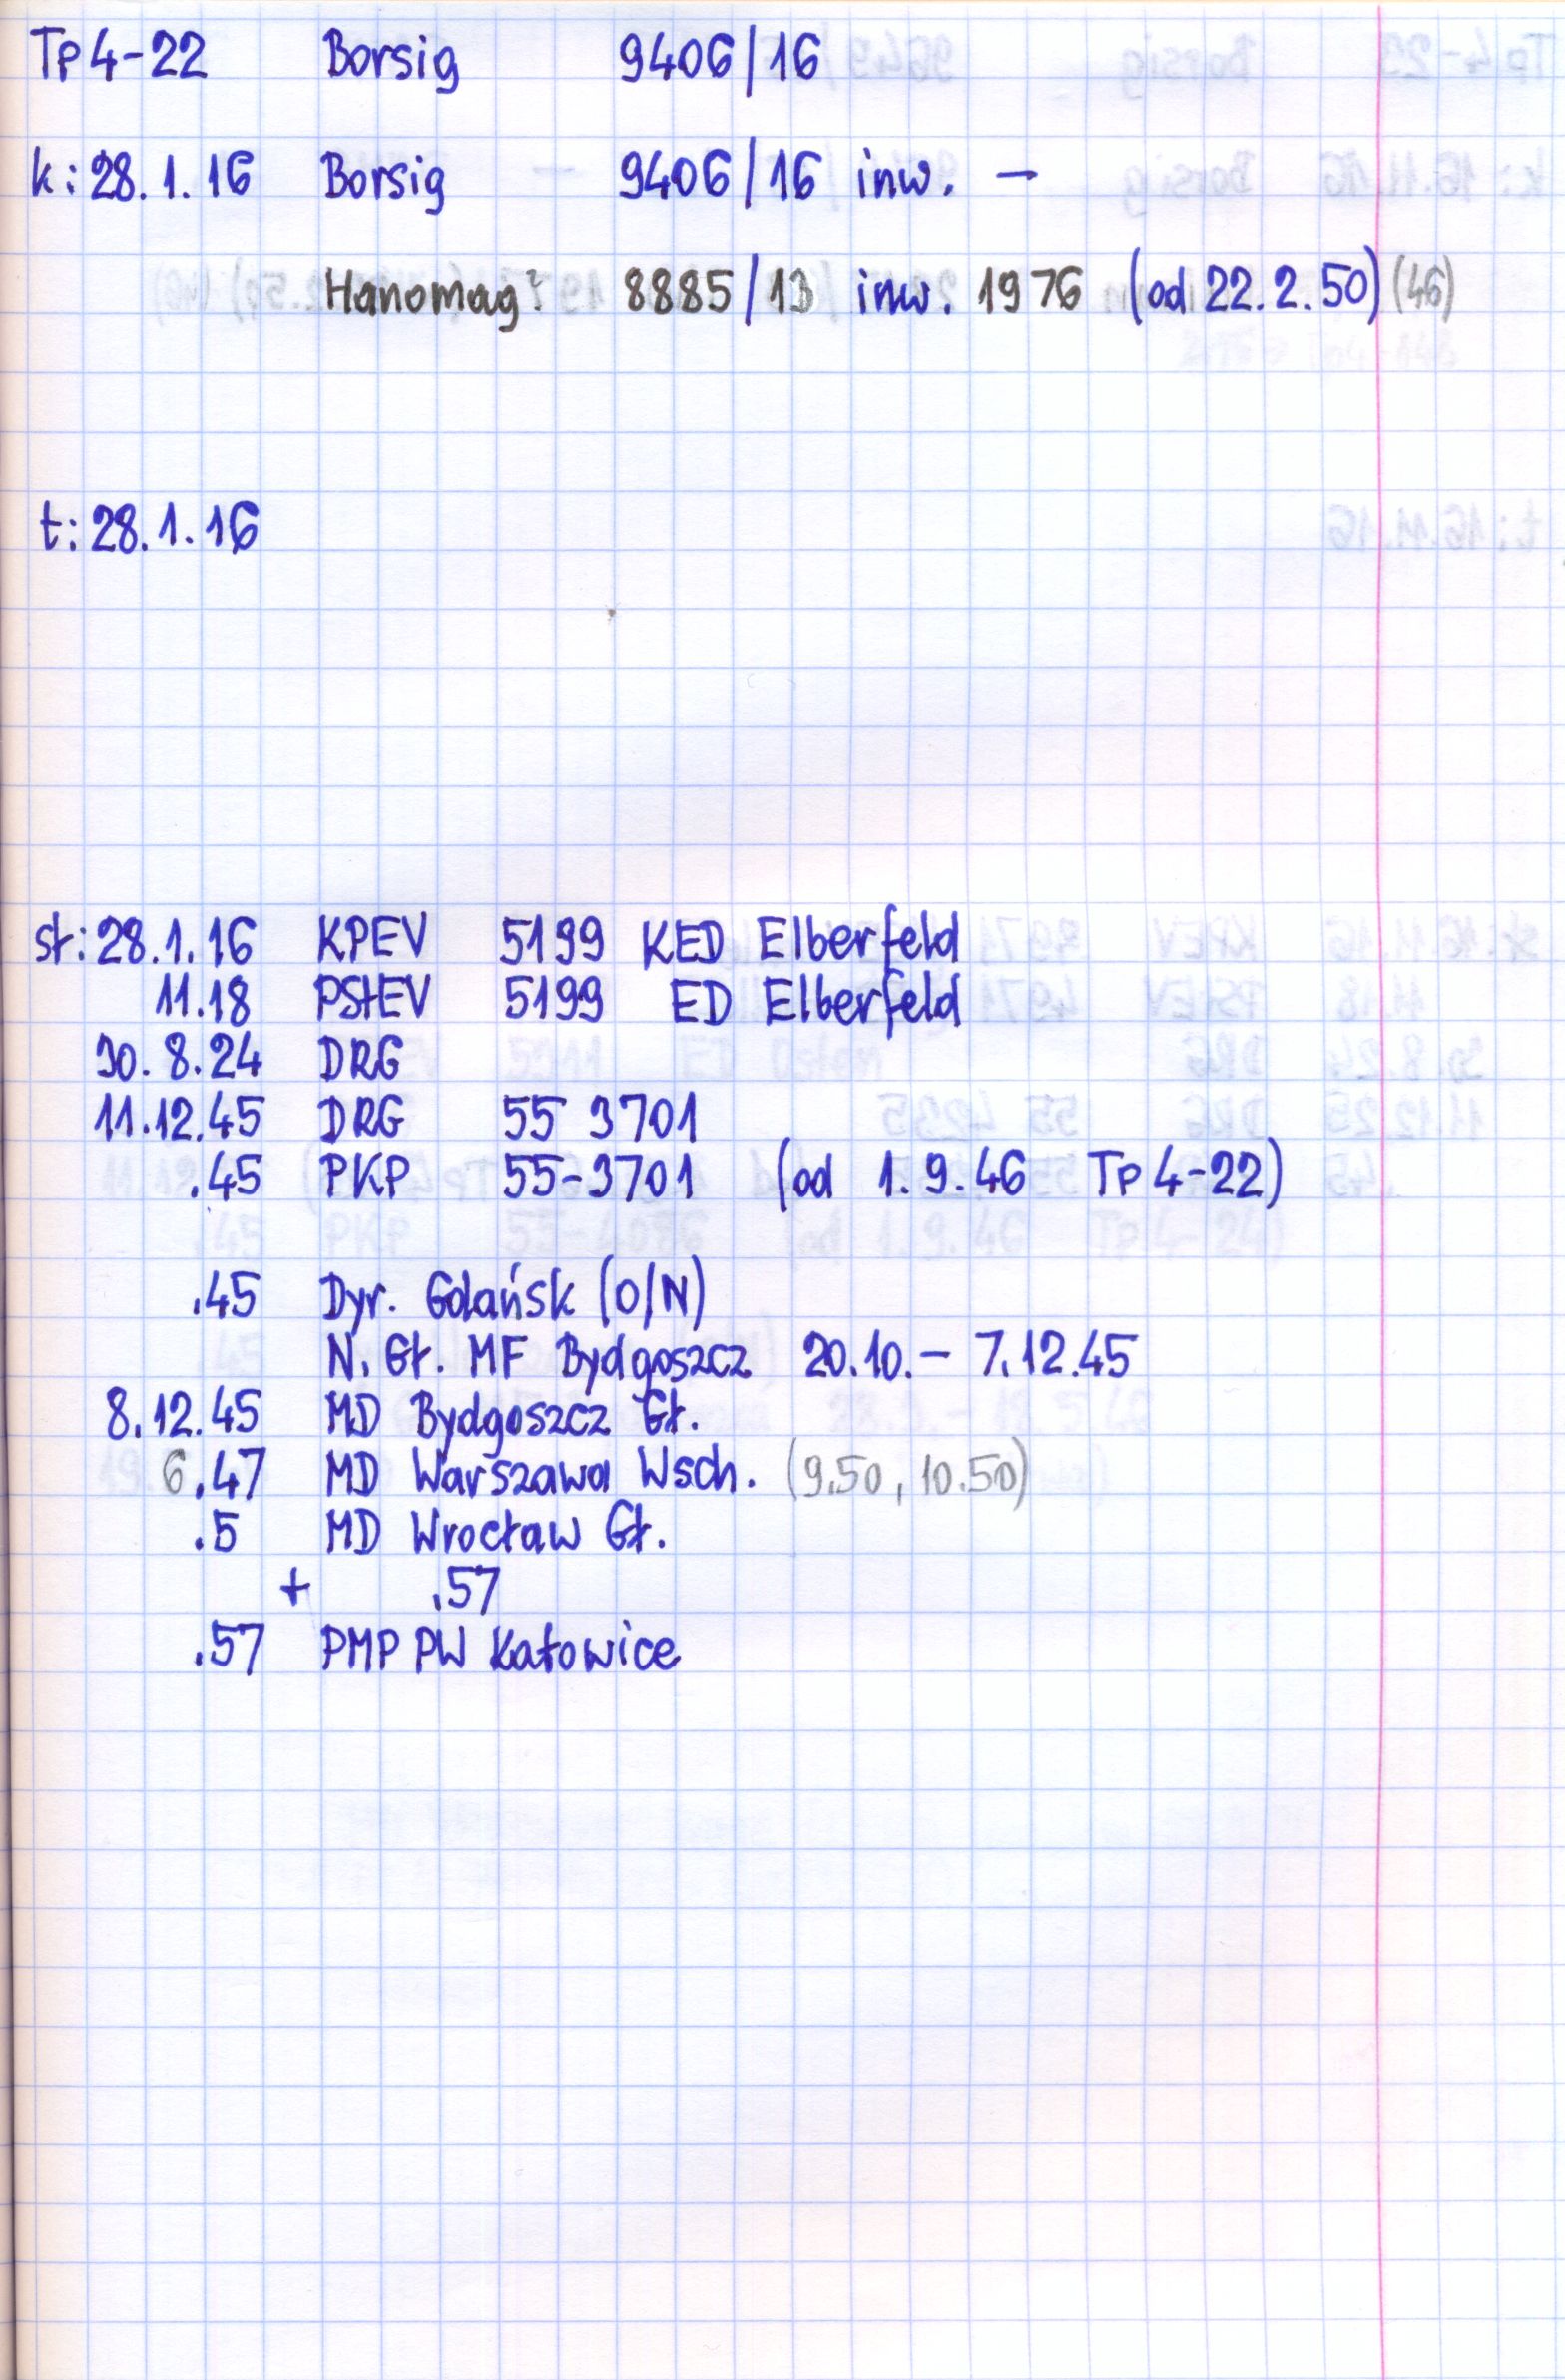 Tp4-22 Borsig 9406/16
k: 28.1.16 Borsig 9406/16 inw. –
Hanomag? 8885/13 inw. 1976 (od 22.2.50) (46)
t: 28.1.16
st: 28.1.16 KPEV 5199 KED Elberfeld
11.18 PStEV 5199 ED Elberfeld
30.8.24 DRG
11.12.45 DRG 55 3701
.45 PKP 55-3701 (od 1.9.46 Tp4-22)
.45 Dyr. Gdańsk (O/N)
N. Gł. MF Bydgoszcz 20.10.– 7.12.45
8.12.45 MD Bydgoszcz Gł.
6.47 MD Warszawa Wsch. (9.50, 10.50)
.5 MD Wrocław Gł.
+ .57
.57 PMP PW Katowice